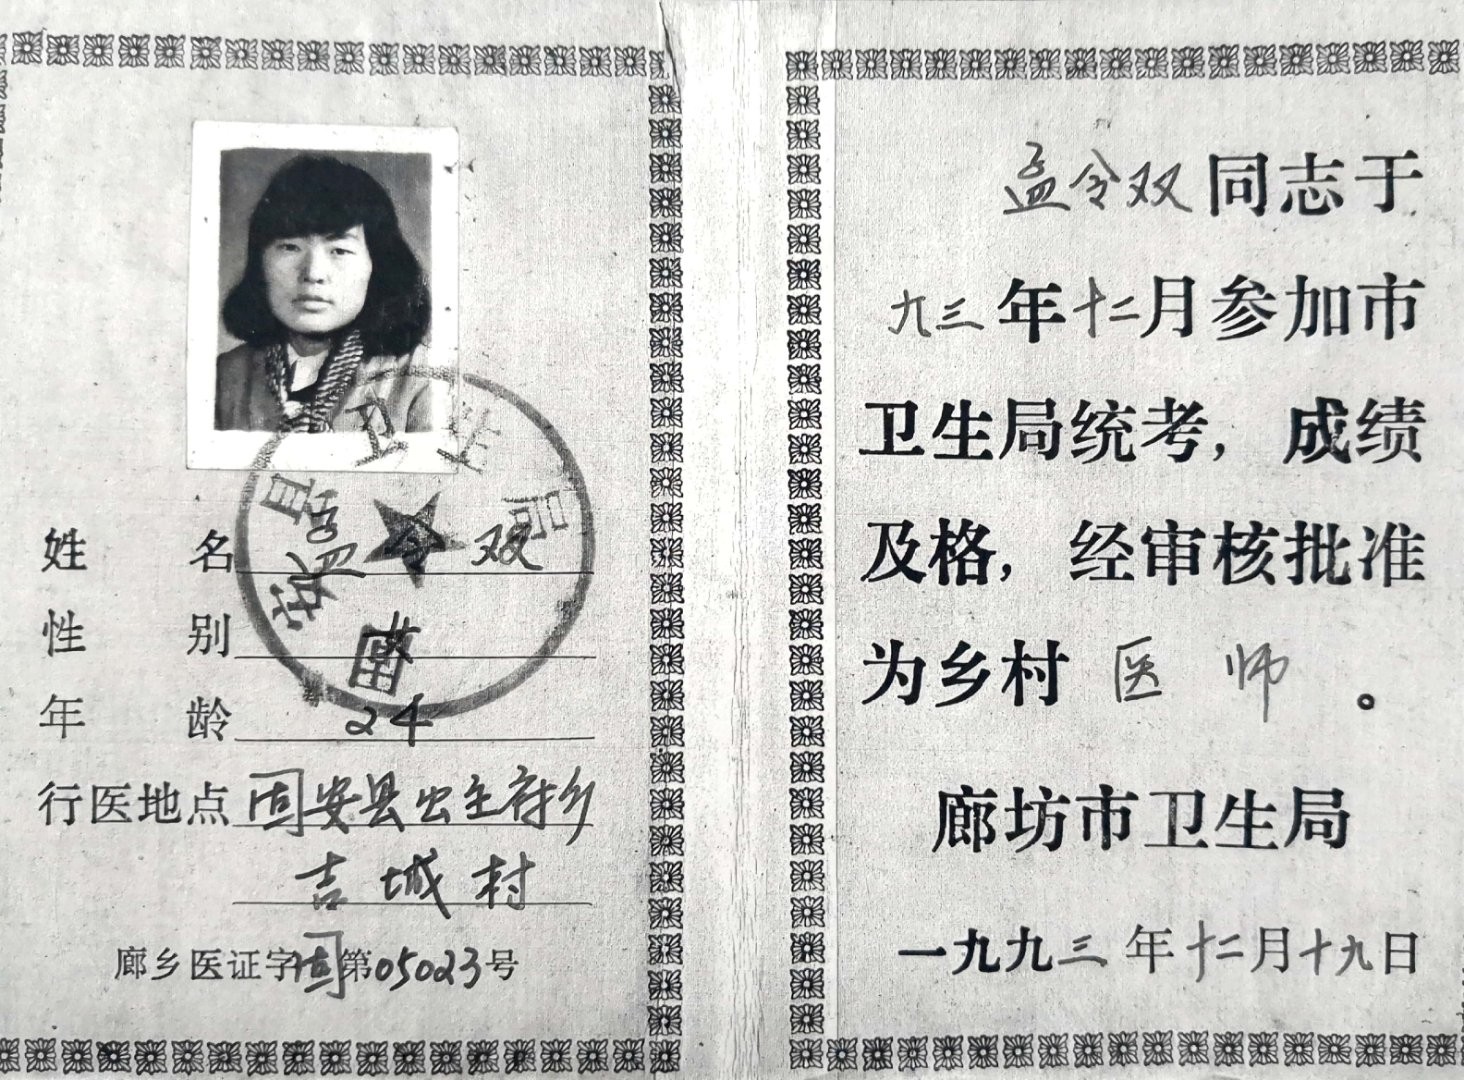 姓名 孟令双
性别 女
年龄 24
行医地点 固安县出主府乡
吉城村
廊乡医证字固第05023号
固安县卫生局
孟令双同志于
九三年十二月参加市
卫生局统考，成绩
及格，经审核批准
为乡村医师。
廊坊市卫生局
一九九三年十二月十九日